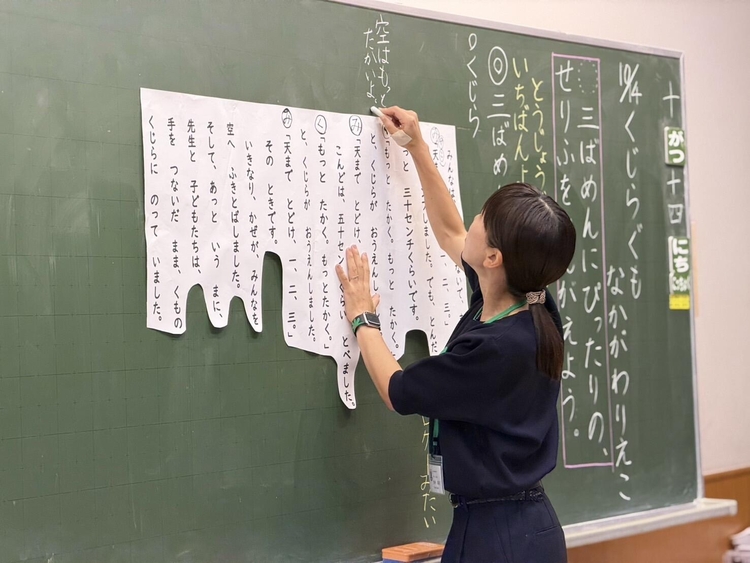 十がつ十四にち
くじらぐも
なかがわりえこ
三ばめんにぴったりの、
せりふを がえよう。
とうじょう
いちばんよ
◎三ばめ
○くじら
空はもっと
たかいよ。
みんなは
しました。でも、とんだ
三十センチくらいです。
もっと たかく。もっと たかく。
と、くじらが おうえんし
み「天まで とどけ、
こんどは、五十セン くらい とべました。
く「もっと たかく。もっとたかく。」
と、くじらが おうえんしました。
み「天まで とどけ、一、二、三。」
その ときです。
いきなり、かぜが みんなを
空へ ふきとばしました。
そして、あっと いう まに、
先生と 子どもたちは、
手を つないだ まま、くもの
くじらに のって いました。
みたい